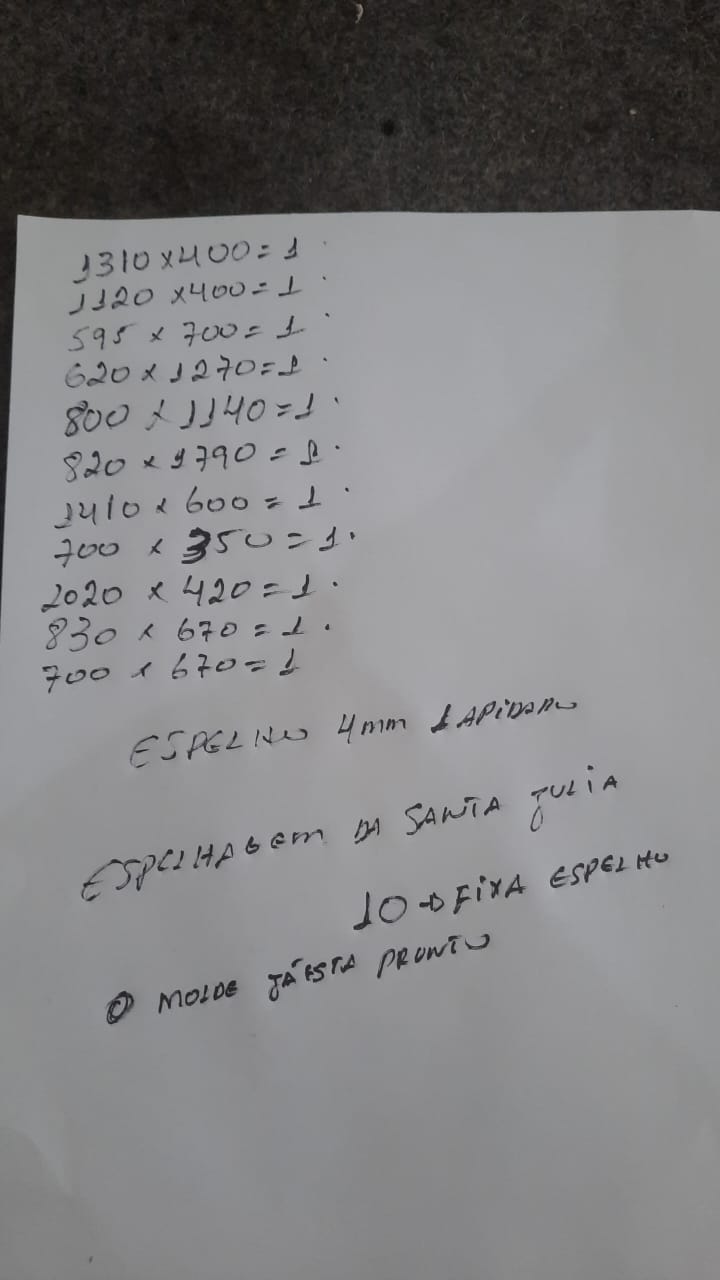 1310 x 400 = 1
1120 x 400 = 1
595 x 700 = 1
620 x 1270 = 1
800 x 1140 = 1
820 x 1790 = 1
1410 x 600 = 1
700 x 350 = 1
2020 x 420 = 1
830 x 670 = 1
700 x 670 = 1
ESPELHO 4mm LAPIDADO
ESPELHAGEM DA SANTA JULIA
10 → FIXA ESPELHO
O MOLDE JÁ ESTA PRONTO